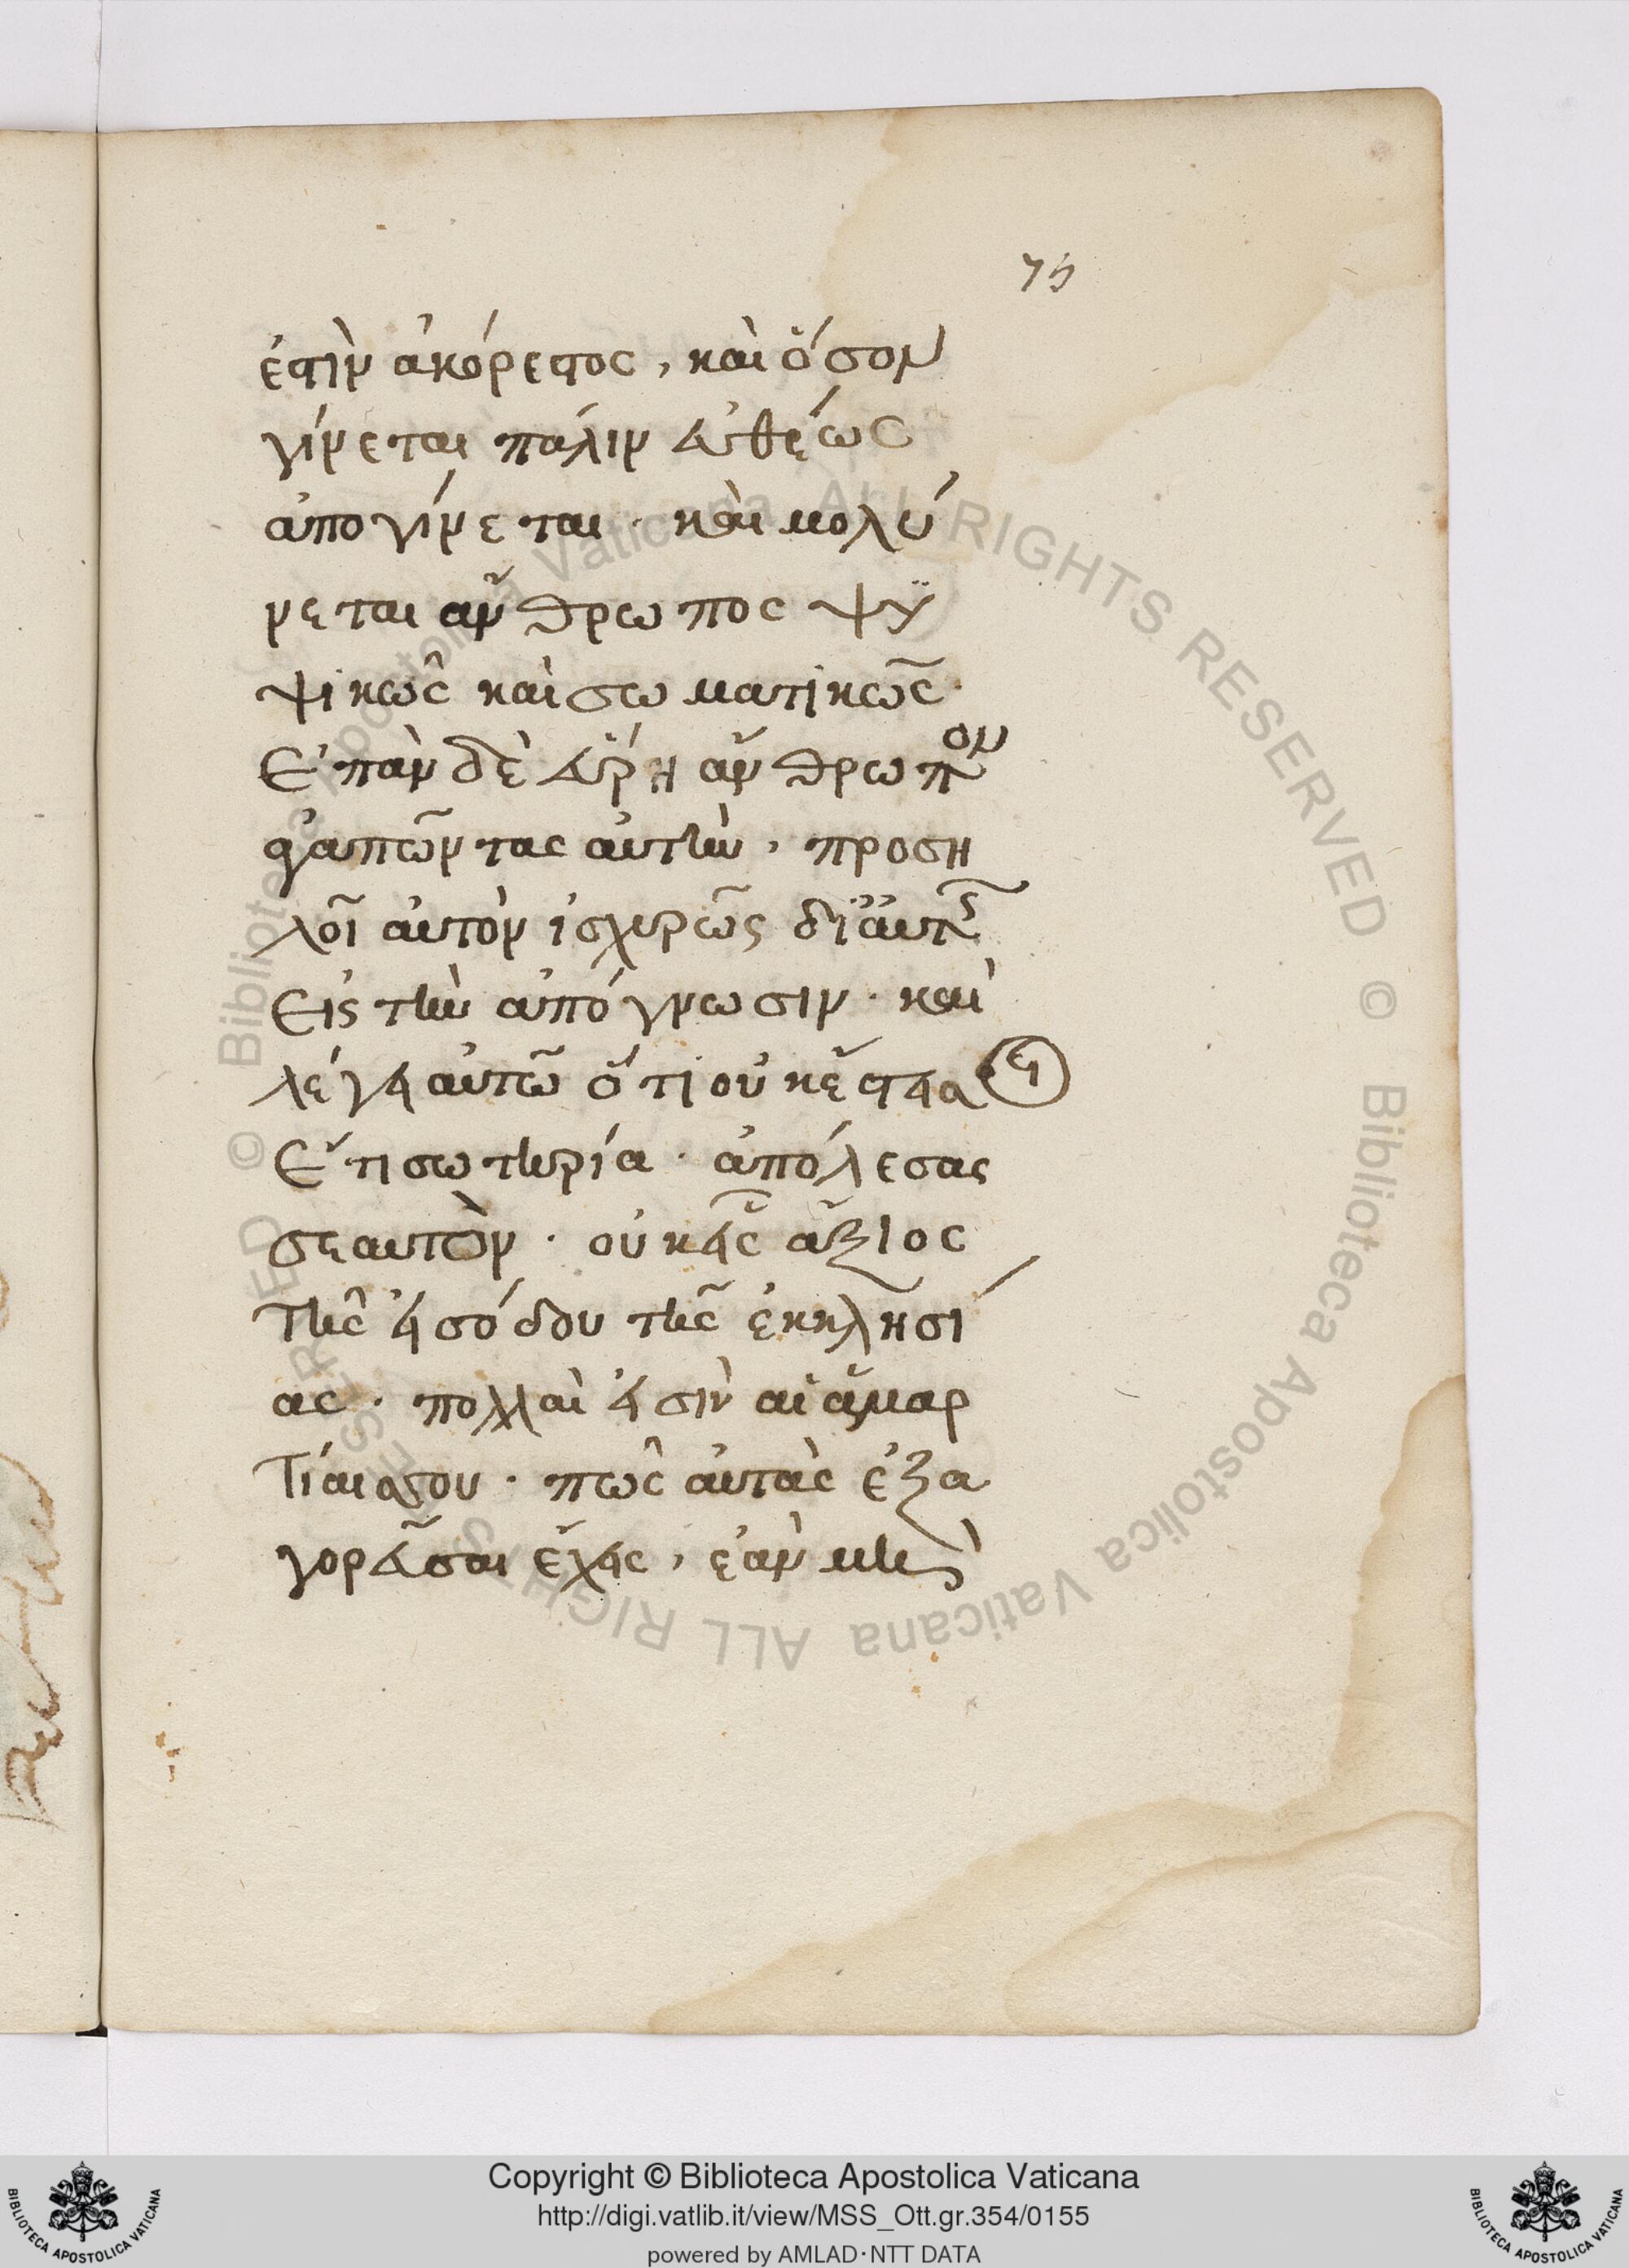 75
ἐστὶν ἀκόρεστος, καὶ ὅσον
γίνεται πάλιν εὐθέως
ἀπογίνεται· καὶ μολύ
νεται ἄνθρωπος ψϋ
ψικῶς καὶ σωματικῶς·
Ἐπὰν δὲ εὕρη ἄνθρωπον
ἀγαπῶντας αὐτὴν, προση
λοῖ αὐτὸν ἰσχυρῶς δι αὐτῆς
Εἰς τὴν ἀπόγνωσιν· καὶ
λέγει αὐτῶ ὅτι οὐκ ἔστι σοι
Ἔτι σωτηρία· ἀπόλεσας
σεαυτὸν· οὐκ εἶς ἄξιος
Τῆς εἰσόδου τῆς ἐκκλησί
ας· πολλαὶ εἰσὶν αἱ ἁμαρ
Τίαι σου· πῶς αὐτὰς ἐξα
γορεῦσαι ἔχεις, ἐὰν μὴ
© Biblioteca Apostolica Vaticana ALL RIGHTS RESERVED © Biblioteca Apostolica Vaticana ALL RIGHTS RESERVED
Copyright © Biblioteca Apostolica Vaticana
http://digi.vatlib.it/view/MSS_Ott.gr.354/0155
powered by AMLAD·NTT DATA
BIBLIOTECA APOSTOLICA VATICANA
BIBLIOTECA APOSTOLICA VATICANA